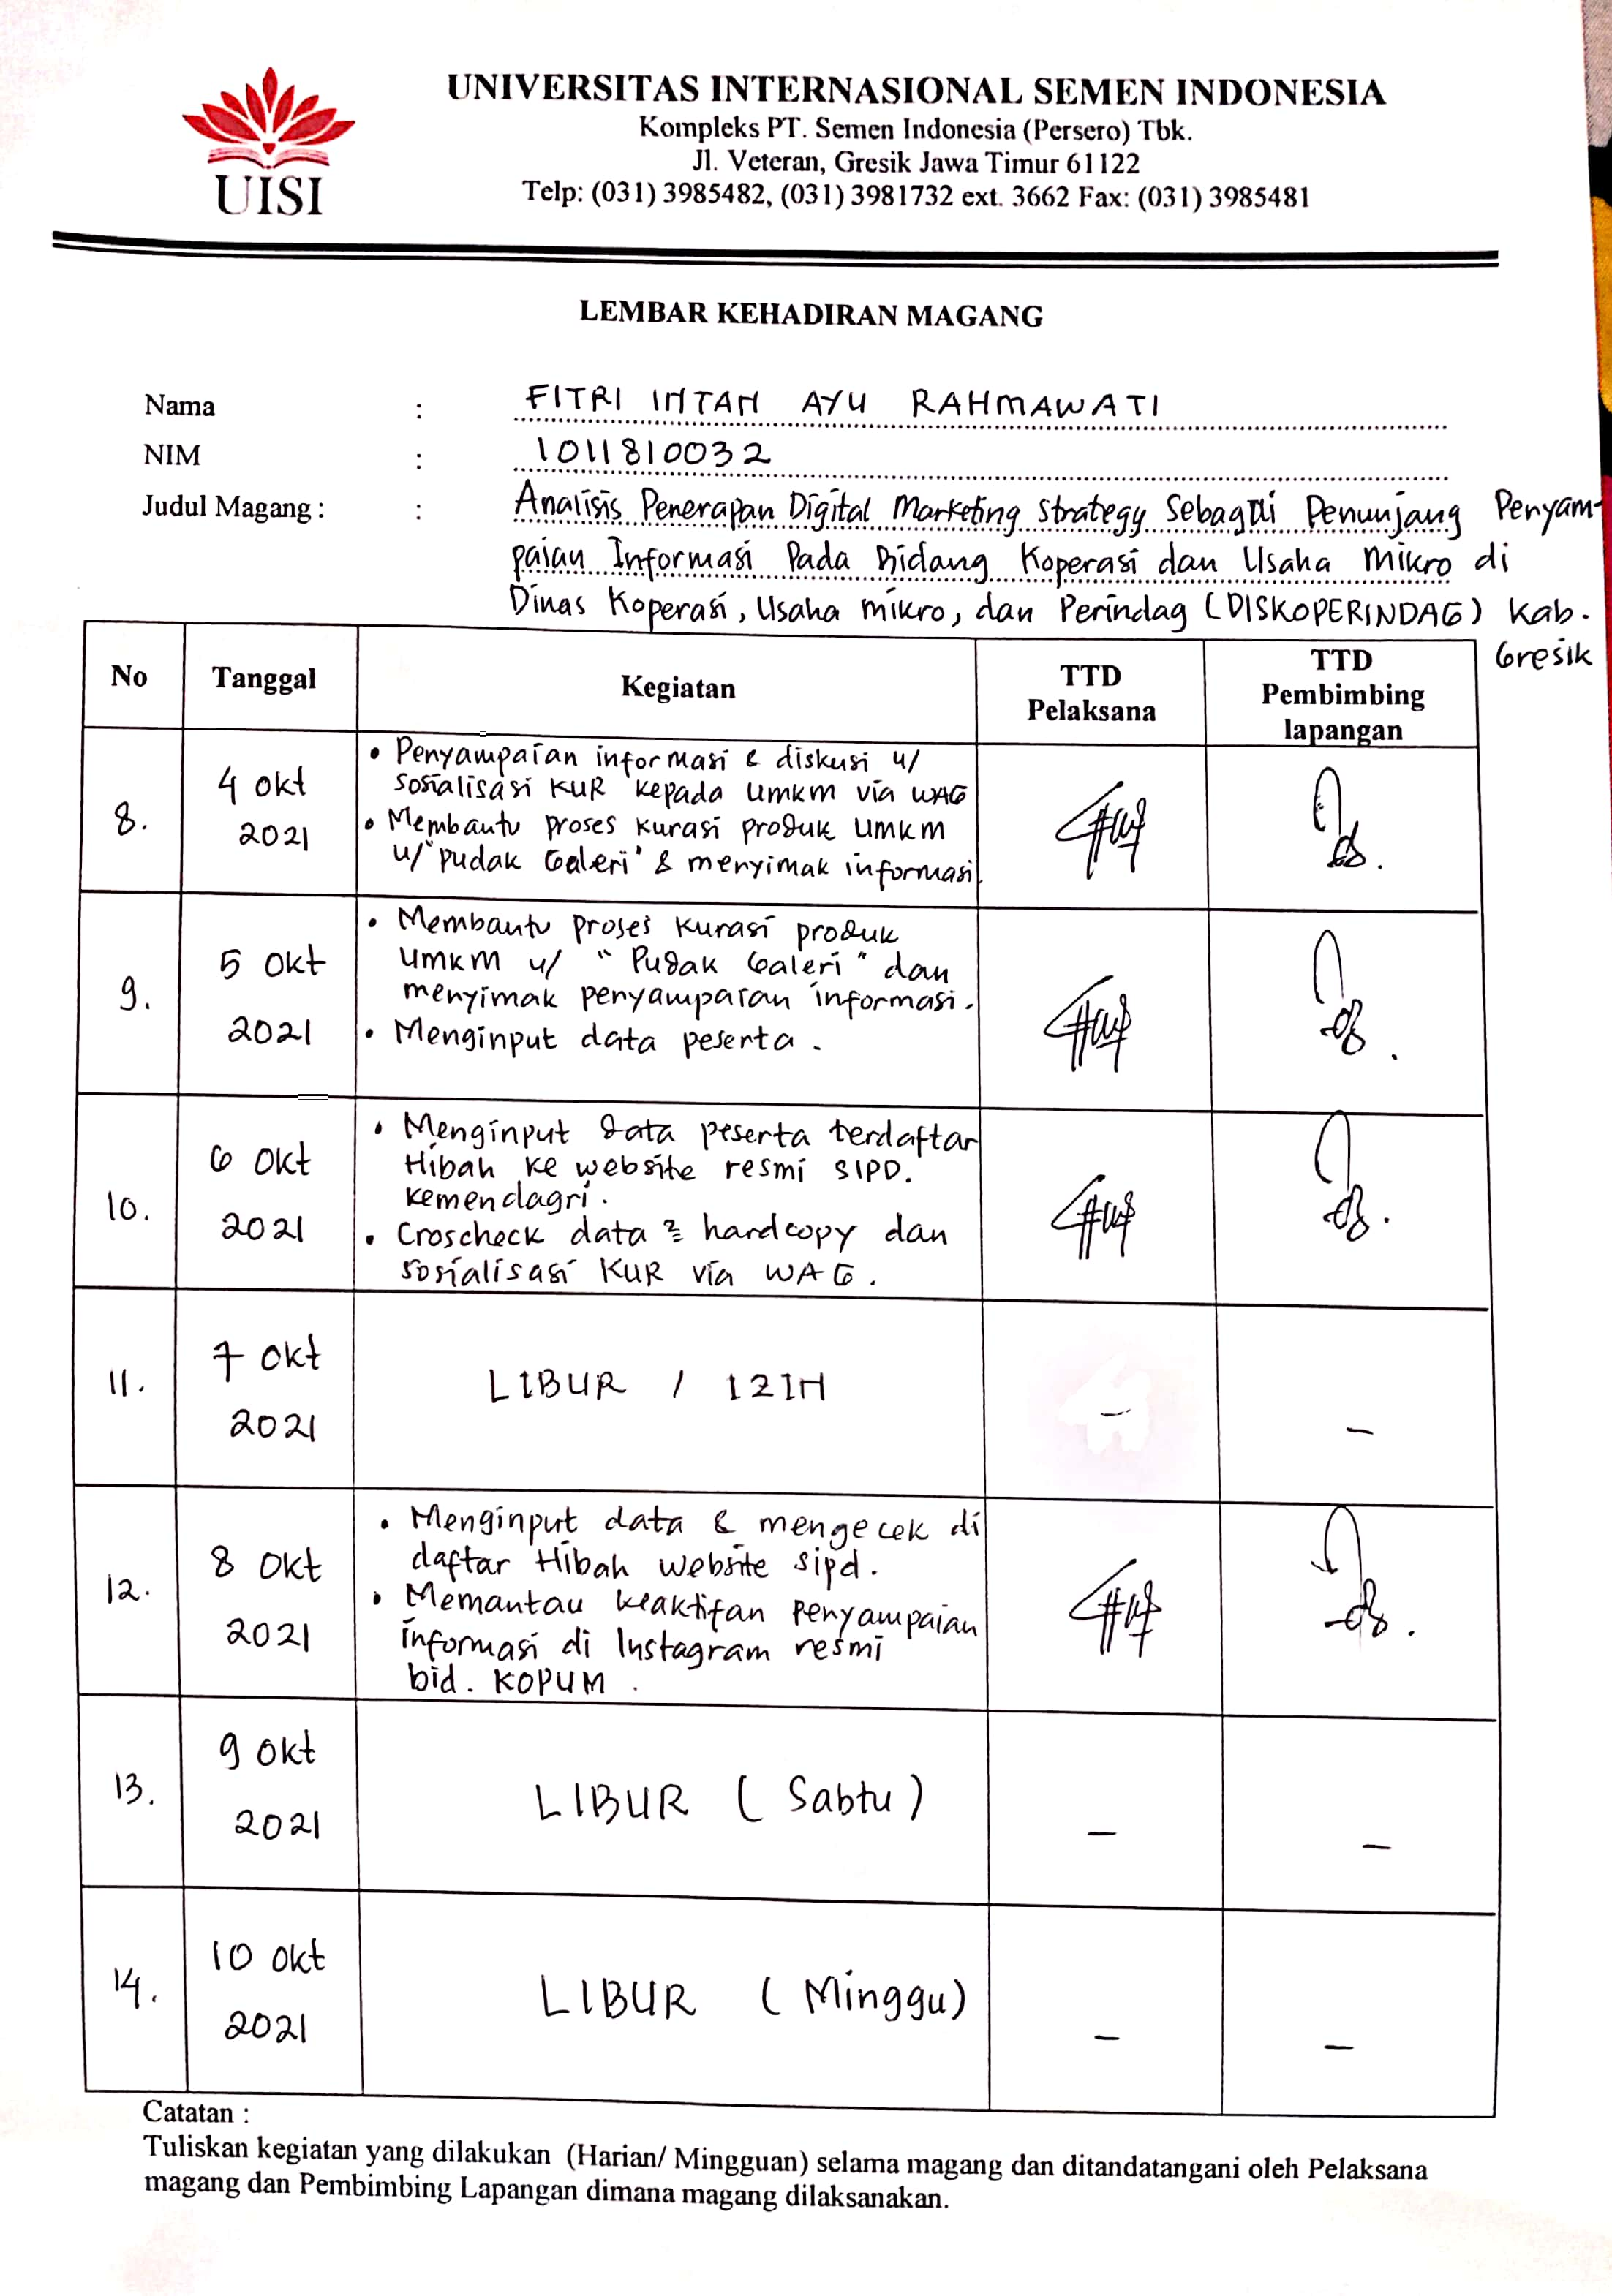 UNIVERSITAS INTERNASIONAL SEMEN INDONESIA
Kompleks PT. Semen Indonesia (Persero) Tbk.
Jl. Veteran, Gresik Jawa Timur 61122
Telp: (031) 3985482, (031) 3981732 ext. 3662 Fax: (031) 3985481
UISI
LEMBAR KEHADIRAN MAGANG
Nama : FITRI INTAN AYU RAHMAWATI
NIM : 1011810032
Judul Magang : : Analisis Penerapan Digital Marketing Strategy Sebagai Penunjang Penyam-
paian Informasi Pada Bidang Koperasi dan Usaha Mikro di
Dinas Koperasi, Usaha mikro, dan Perindag (DISKOPERINDAG) Kab.
Gresik
No Tanggal Kegiatan TTD Pelaksana TTD Pembimbing lapangan
8. 4 Okt 2021
• Penyampaian informasi & diskusi u/
sosialisasi KUR kepada umkm via WAG
• Membantu proses kurasi produk UMKM
u/ "Pudak Galeri" & menyimak informasi.
9. 5 Okt 2021
• Membantu proses kurasi produk
UMKM u/ "Pudak Galeri" dan
menyimak penyampaian informasi.
• Menginput data peserta.
10. 6 Okt 2021
• Menginput data peserta terdaftar
Hibah ke website resmi SIPD.
kemendagri.
• Croscheck data² hardcopy dan
sosialisasi KUR via WAG.
11. 7 Okt 2021
LIBUR / IZIN
– –
12. 8 Okt 2021
• Menginput data & mengecek di
daftar Hibah website sipd.
• Memantau keaktifan penyampaian
informasi di Instagram resmi
bid. KOPUM.
13. 9 Okt 2021
LIBUR (Sabtu)
– –
14. 10 Okt 2021
LIBUR (Minggu)
– –
Catatan :
Tuliskan kegiatan yang dilakukan (Harian/ Mingguan) selama magang dan ditandatangani oleh Pelaksana
magang dan Pembimbing Lapangan dimana magang dilaksanakan.